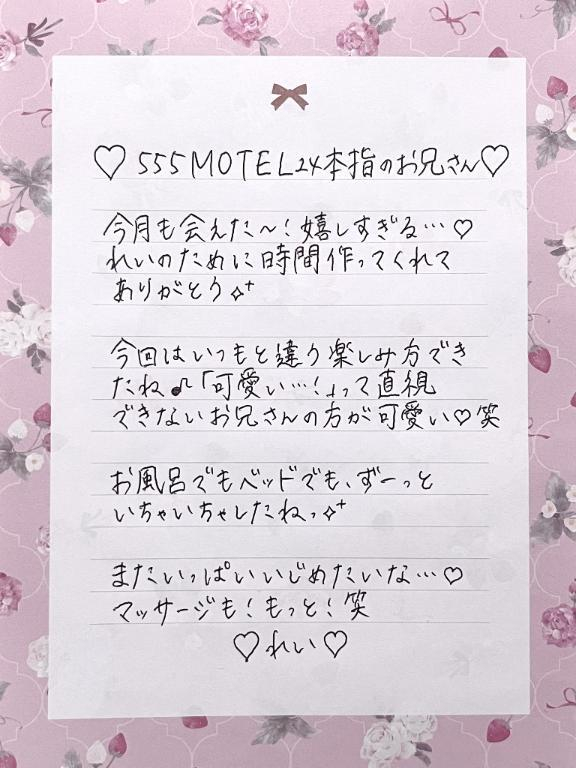 ♡555MOTEL24本指のお兄さん♡
今月も会えた〜!嬉しすぎる…♡
れいのために時間作ってくれて
ありがとう✧⁺
今回はいつもと違う楽しみ方でき
たね♫「可愛い…!」って直視
できないお兄さんの方が可愛い♡笑
お風呂でもベッドでも、ずーっと
いちゃいちゃしたねっ✧⁺
またいっぱいいじめたいな…♡
マッサージも!もっと!笑
♡れい♡